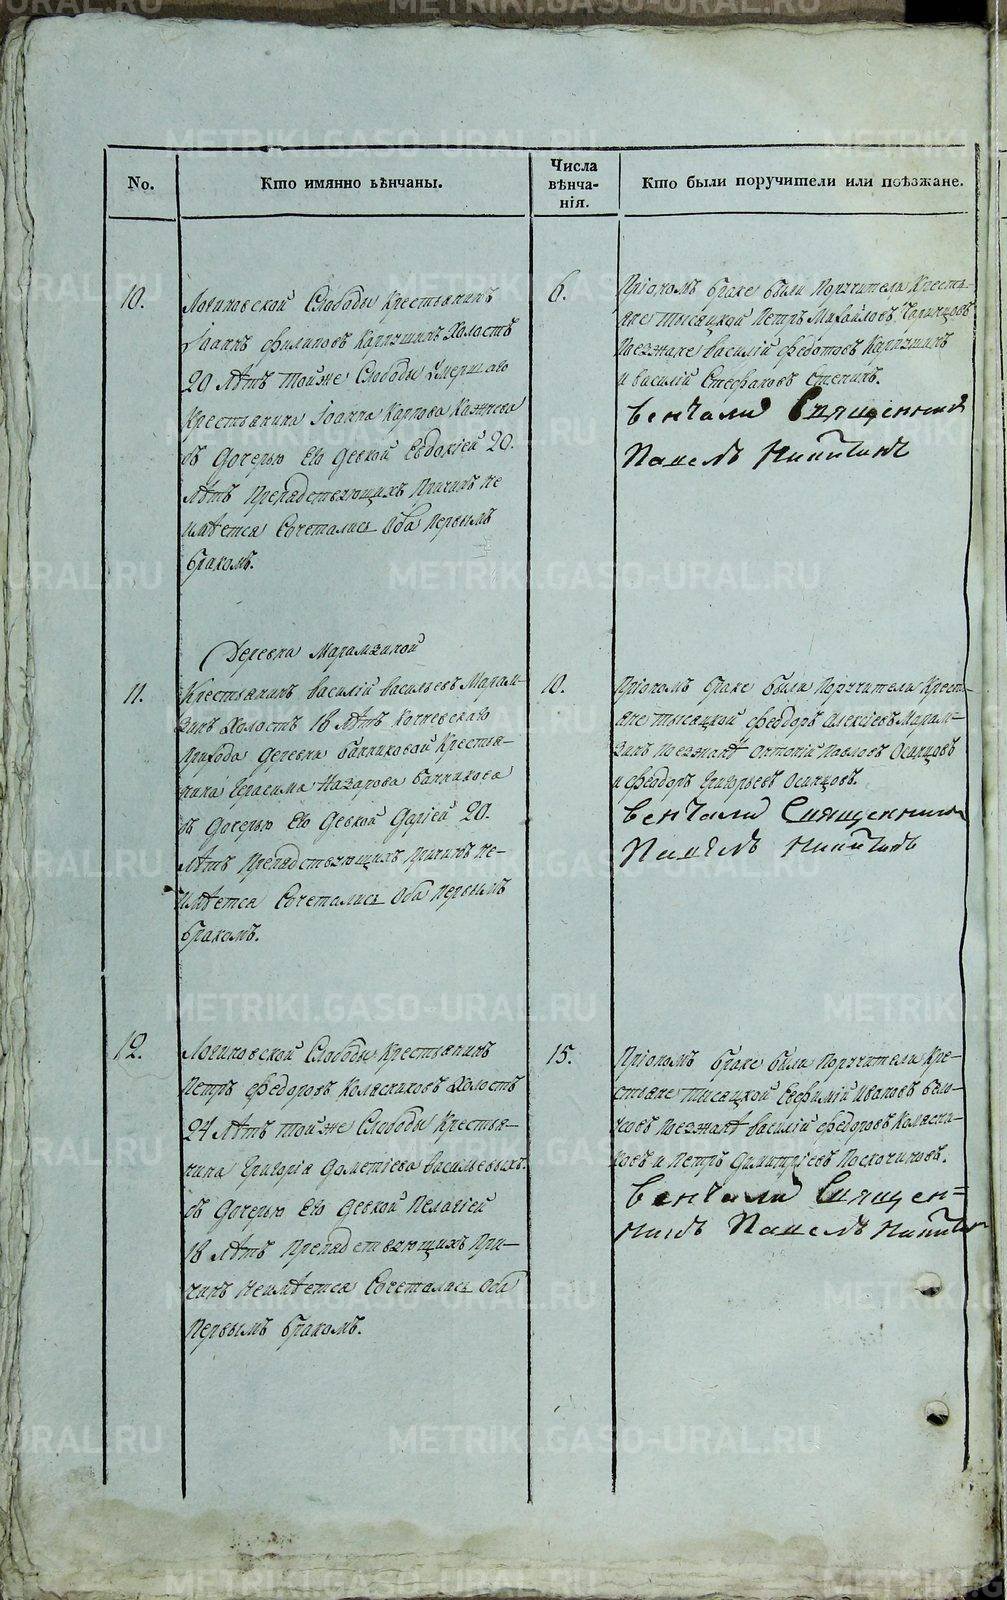 No.
Кто имянно вѣнчаны.
Числа
вѣнча-
нія.
Кто были поручители или поѣзжане.
10.
Логиновской Слободы Крестьянинъ
Іоаннъ Филиповъ Холостъ
20 лѣтъ тойже Слободы Умершаго
Крестьянина Іоанна Карпова
съ Дочерью Ею Девкой Евдокіей 20.
лѣтъ Препядствующихъ Причинъ не
имѣется Сочетались Оба Первымъ
бракомъ.
6.
Пріономъ браке были Поручители Кресть-
яне тысяцкой Петръ Михайловъ
Поезжане Василій Федотовъ
и Василій Стефановъ
Венчали Священникъ
Павелъ Никитинъ
Деревни Марамзиной
11.
Крестьянинъ Василій Васильевъ Марам-
зинъ Холостъ 18 лѣтъ
Прихода Деревни Банниковой Крестья-
нина Герасима Назарова Банникова
съ Дочерью Ею Девкой Дарьей 20.
лѣтъ Препядствующихъ Причинъ не-
имѣется Сочетались Оба Первымъ
бракомъ.
10.
Пріономъ браке были Поручители Крест-
яне тысяцкой Феодоръ Алексѣевъ Марам-
зинъ Поезжанѣ Антоній Павловъ Осинцовъ
и Феодоръ Григорьевъ Осинцовъ.
Венчали Священникъ
Павелъ Никитинъ
12.
Логиновской Слободы Крестьянинъ
Петръ Федоровъ Колясниковъ Холостъ
24 лѣтъ тойже Слободы Крестья-
нина Григорія Дометіева Васильевыхъ
съ Дочерью Ею Девкой Пелагіей
18 лѣтъ Препядствующихъ При-
чинъ неимѣется Сочетались Оба
Первымъ бракомъ.
15.
Пріономъ браке были Поручители Кре-
стьяне тысяцкой Евфимій Ивановъ
Поезжанѣ Василій Федоровъ Колясни-
ковъ и Петръ Димитріевъ
Венчали Священ=
никъ Павелъ Никитин
METRIKI.GASO-URAL.RU